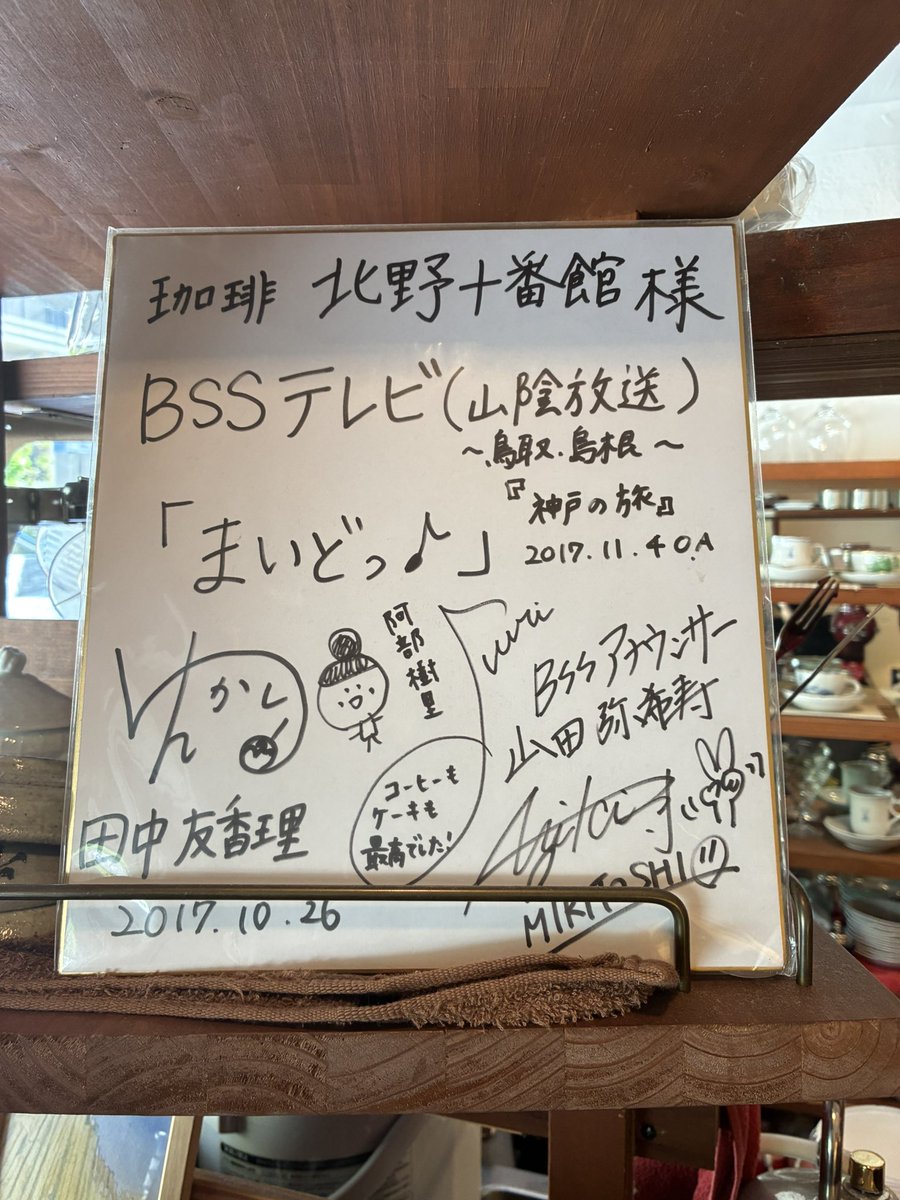 珈琲 北野十番館様
BSSテレビ(山陰放送)
～鳥取.島根～
「まいどっ♪」
『神戸の旅』
2017.11.4 O.A
阿部樹里
Juri
BSSアナウンサー
山田弥希寿
MIKITOSHI
コーヒーも
ケーキも
最高でした!
田中友香理
2017.10.26